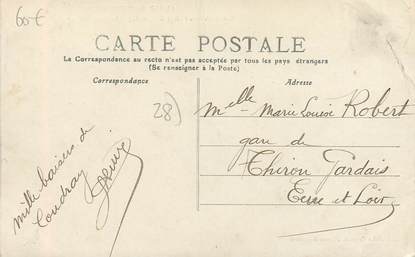 60 €
CARTE POSTALE
La Correspondance au recto n'est pas acceptée par tous les pays étrangers
(Se renseigner à la Poste)
Correspondance
Adresse
28)
Mille baisers de
Coudray
Melle Marie Louise Robert
gare de
Thiron Gardais
Eure et Loir